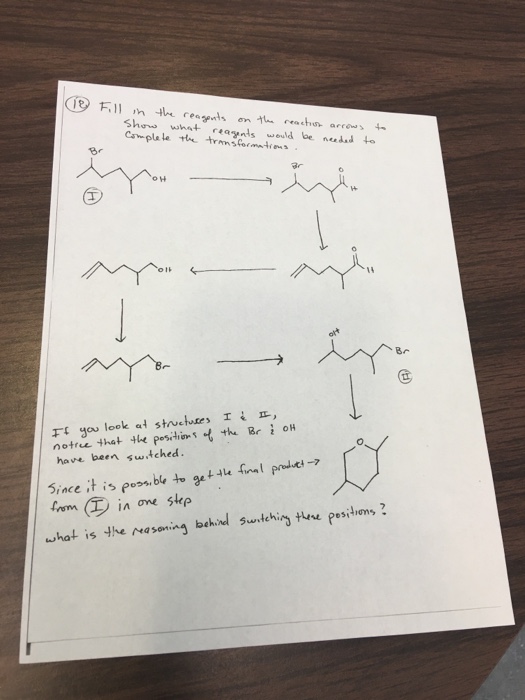 18 Fill in the reagents on the reaction arrows to
show what reagents would be needed to
complete the transformations.
Br
OH
I
Br
O
H
OH
O
H
Br
OH
Br
II
If you look at structures I & II,
notice that the positions of the Br & OH
have been switched.
O
Since it is possible to get the final product →
from I in one step
what is the reasoning behind switching these positions?